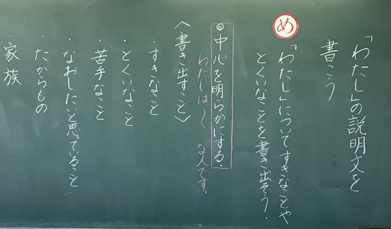 「わたし」の説明文を
書こう
め
「わたし」についてすきなことや
とくいなことを書き出そう。
◎中心を明らかにする。
わたしは〜な人です。
〈書き出すこと〉
すきなこと
・とくいなこと
・苦手なこと
・なおしたいと思っていること
・たからもの
・家族